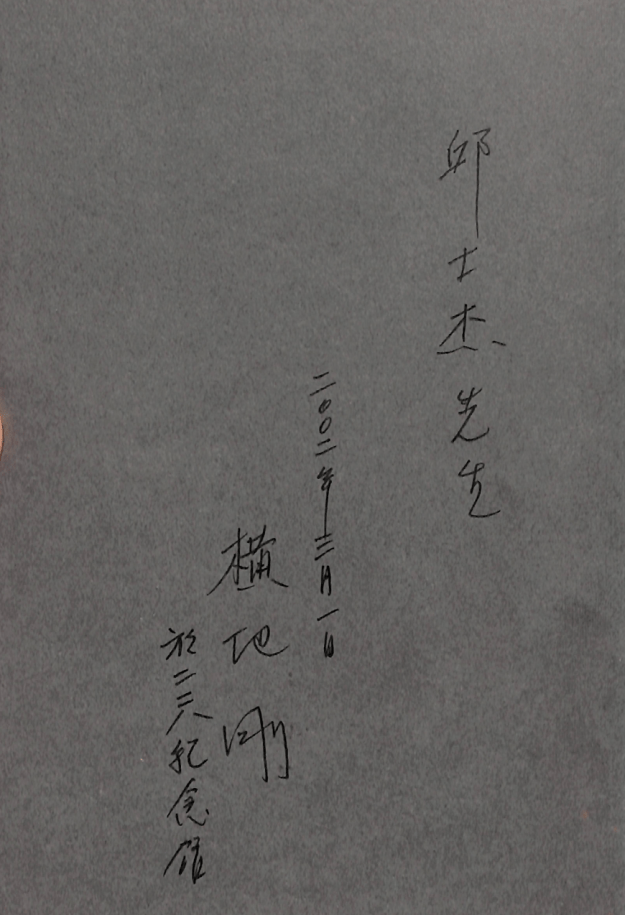 邱士杰先生
二〇〇二年三月一日
横地剛
於二二八紀念館